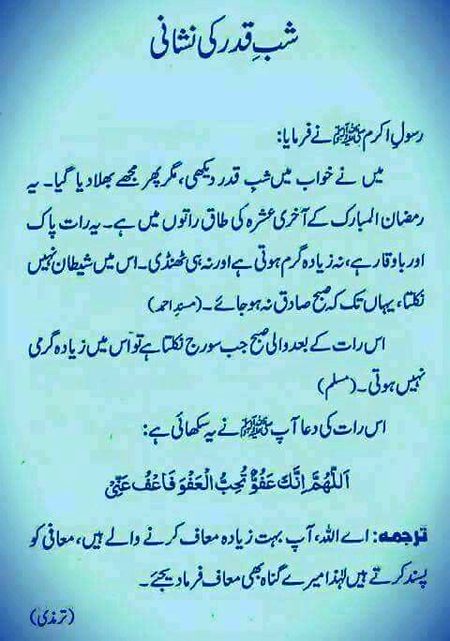 شبِ قدر کی نشانی
رسولِ اکرم ﷺ نے فرمایا:
میں نے خواب میں شبِ قدر دیکھی، مگر پھر مجھے بھلا دیا گیا۔ یہ
رمضان المبارک کے آخری عشرہ کی طاق راتوں میں ہے۔ یہ رات پاک
اور باوقار ہے، نہ زیادہ گرم ہوتی ہے اور نہ ہی ٹھنڈی۔ اس میں شیطان نہیں
نکلتا، یہاں تک کہ صبح صادق نہ ہو جائے۔ (مسند احمد)
اس رات کے بعد والی صبح جب سورج نکلتا ہے تو اس میں زیادہ گرمی
نہیں ہوتی۔ (مسلم)
اس رات کی دعا آپ ﷺ نے یہ سکھائی ہے:
اَللّٰهُمَّ اِنَّكَ عَفُوٌّ تُحِبُّ الْعَفْوَ فَاعْفُ عَنِّيْ
ترجمہ: اے اللہ، آپ بہت زیادہ معاف کرنے والے ہیں، معافی کو
پسند کرتے ہیں لہٰذا میرے گناہ بھی معاف فرما دیجئے۔
(ترمذی)